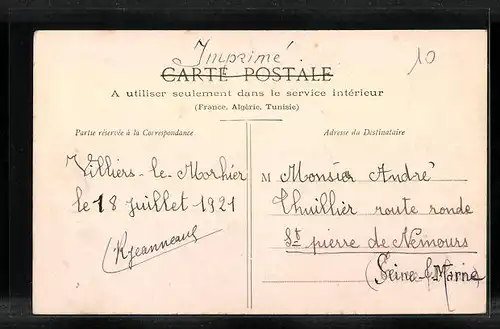 Imprimé
10
CARTE POSTALE
A utiliser seulement dans le service intérieur
(France, Algérie, Tunisie)
Partie réservée à la Correspondance
Adresse du Destinataire
Villiers-le-Morhier
le 18 juillet 1921
RJeanneau
M Monsier André
Thuillier route ronde
St pierre de Nemours
(Seine & Marne